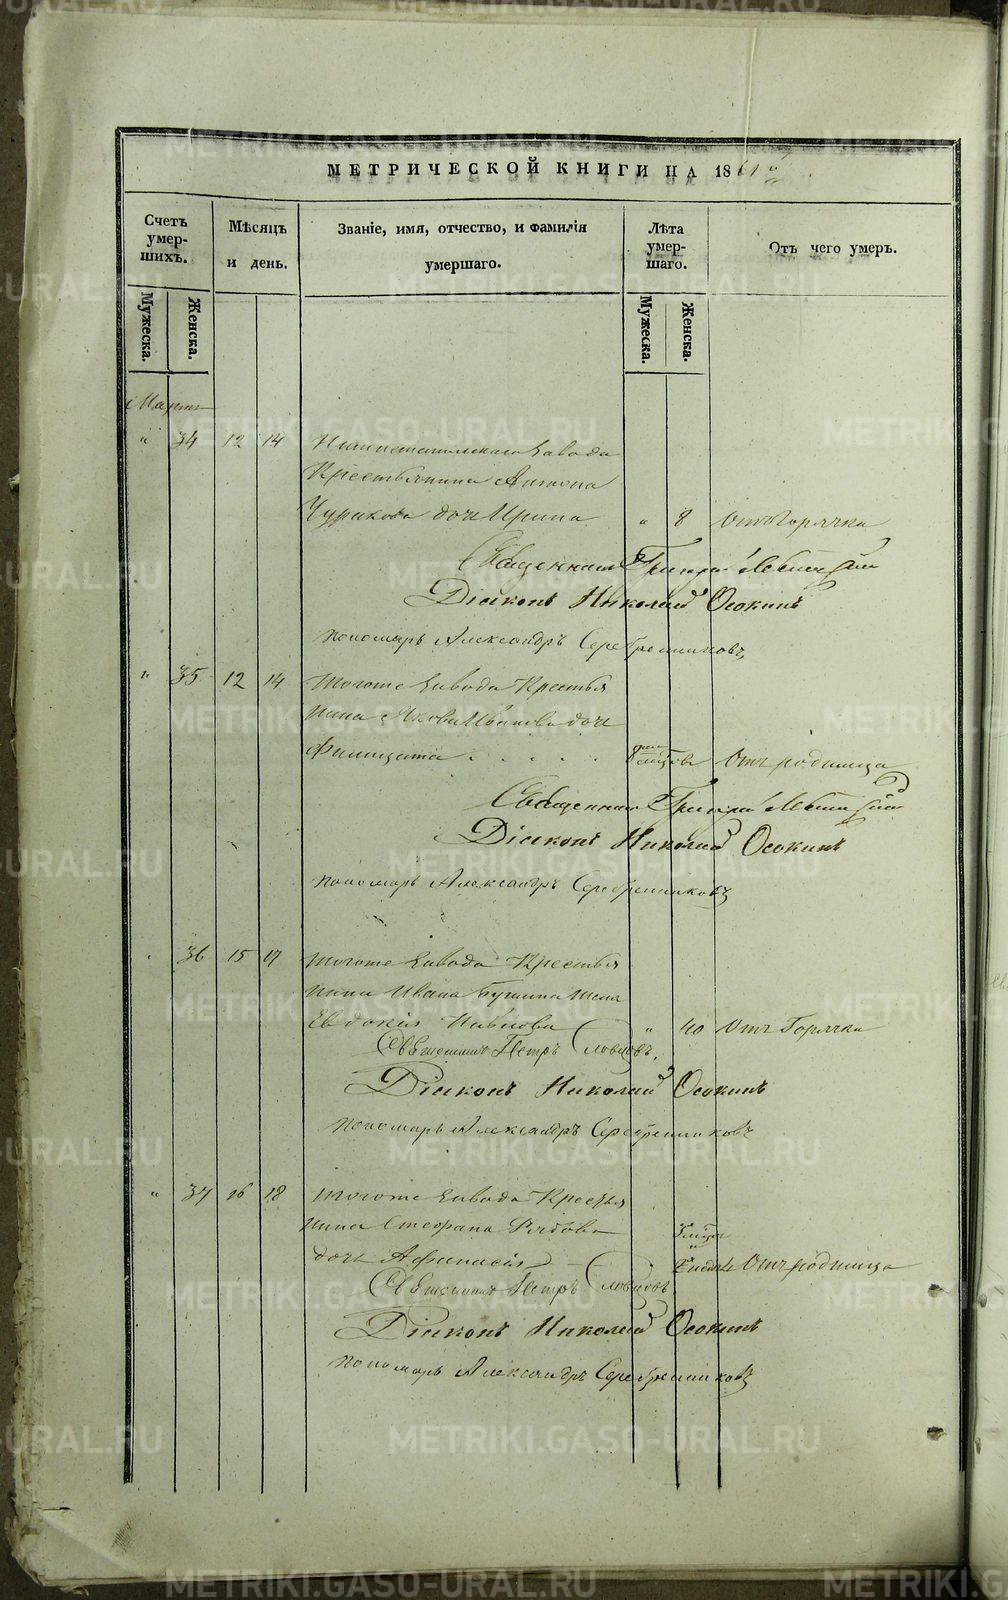 МЕТРИЧЕСКОЙ КНИГИ НА 1861
Счетъ умер- шихъ.
Мѣсяцъ и день.
Званіе, имя, отчество, и фамилія умершаго.
Лѣта умер- шаго.
Отъ чего умеръ.
Мужеска.
Женска.
Мужеска.
Женска.
Мартъ
" 34 12 14 завода
Крестьянина Антона
Чуракова дочь Ирина " 8 Отъ горячки
Священникъ Григорій
Діаконъ Николай Осокинъ
Пономарь Александръ Серебренниковъ
" 35 12 14 тогоже завода Крестья
нина Якова Иванова дочь
Филицата Отъ родимца
Священникъ Григорій
Діаконъ Николай Осокинъ
Пономарь Александръ Серебренниковъ
36 15 17 тогоже завода Крестья
нина Ивана жена
Евдокія " 40 Отъ Горячки
Священникъ Петръ Словцовъ
Діаконъ Николай Осокинъ
Пономарь Александръ Серебренниковъ
" 37 16 18 тогоже завода Крестья
нина Стефана Рябова
дочь Афанасія Отъ родимца
Священникъ Петръ Словцовъ
Діаконъ Николай Осокинъ
Пономарь Александръ Серебренниковъ
METRIKI.GASO-URAL.RU